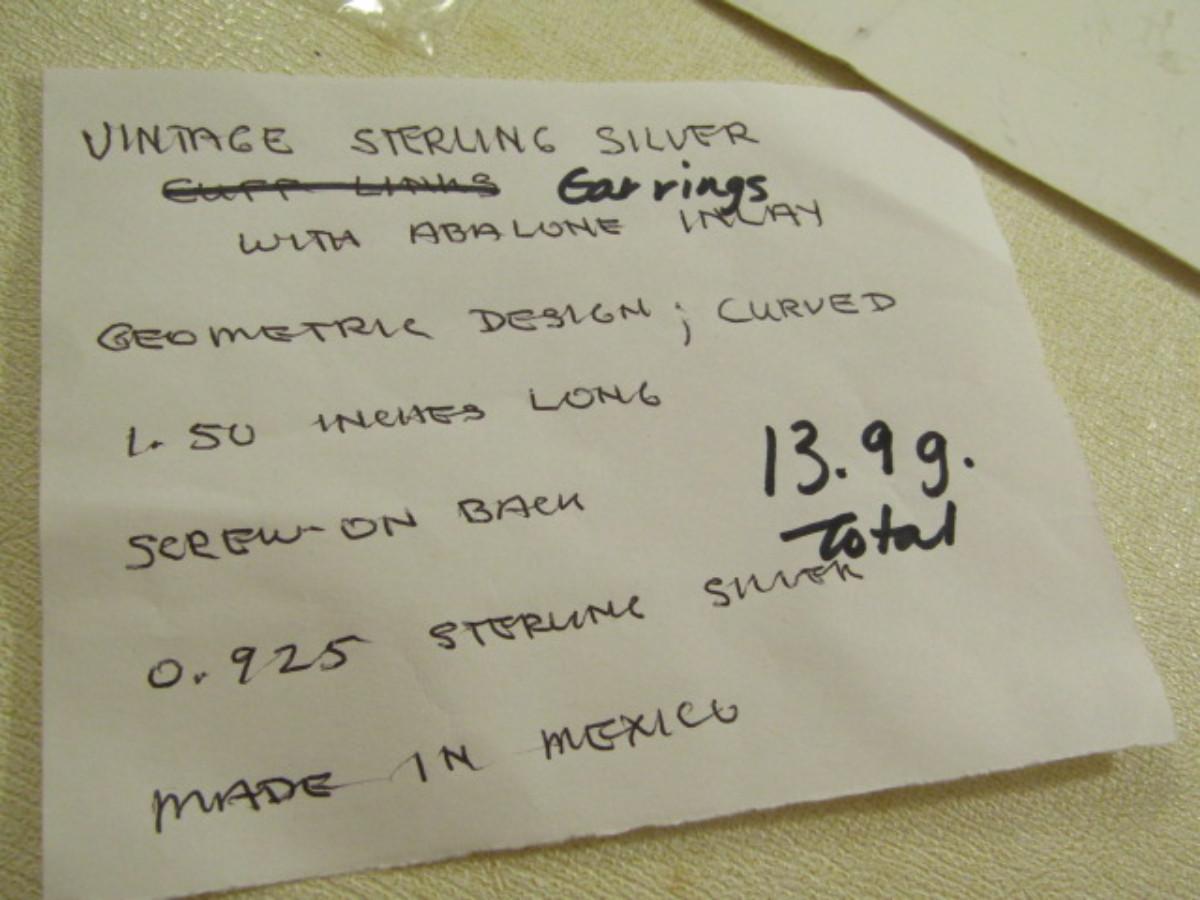 VINTAGE STERLING SILVER
CUFF LINKS Earrings
WITH ABALONE INLAY
GEOMETRIC DESIGN; CURVED
1.50 INCHES LONG
13.9 g.
SCREW-ON BACK
Total
0.925 STERLING SILVER
MADE IN MEXICO